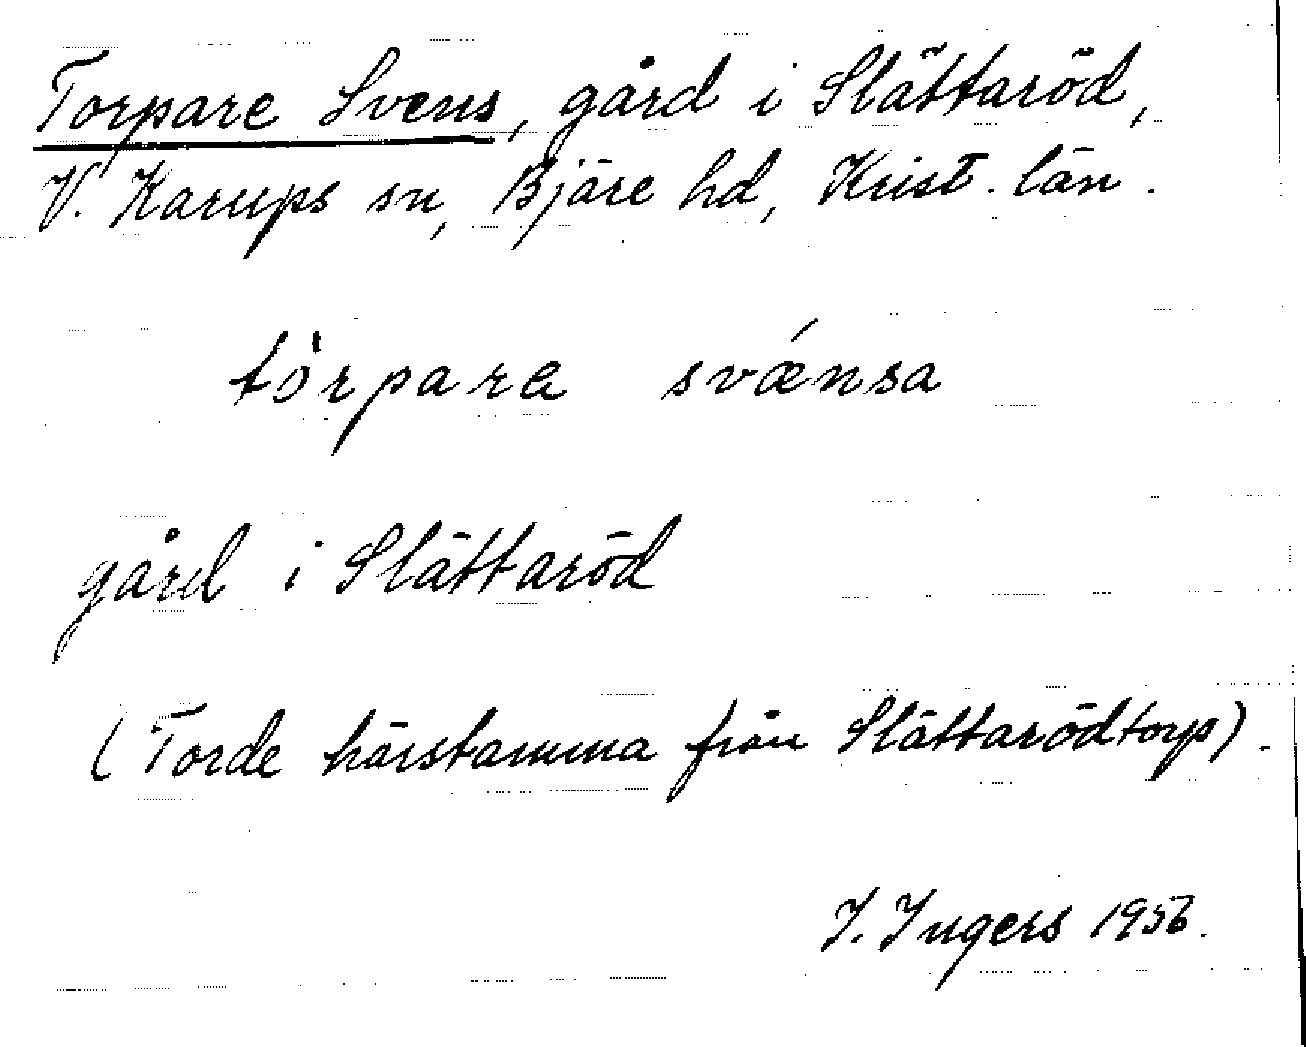 Torpare Svens, gård i Slättaröd,
V. Karups sn, Bjäre hd, Krist. län.
tòrpara svǽnsa
gård i Slättaröd
(Torde härstamma från Slättarödtorp).
I. Ingers 1956.